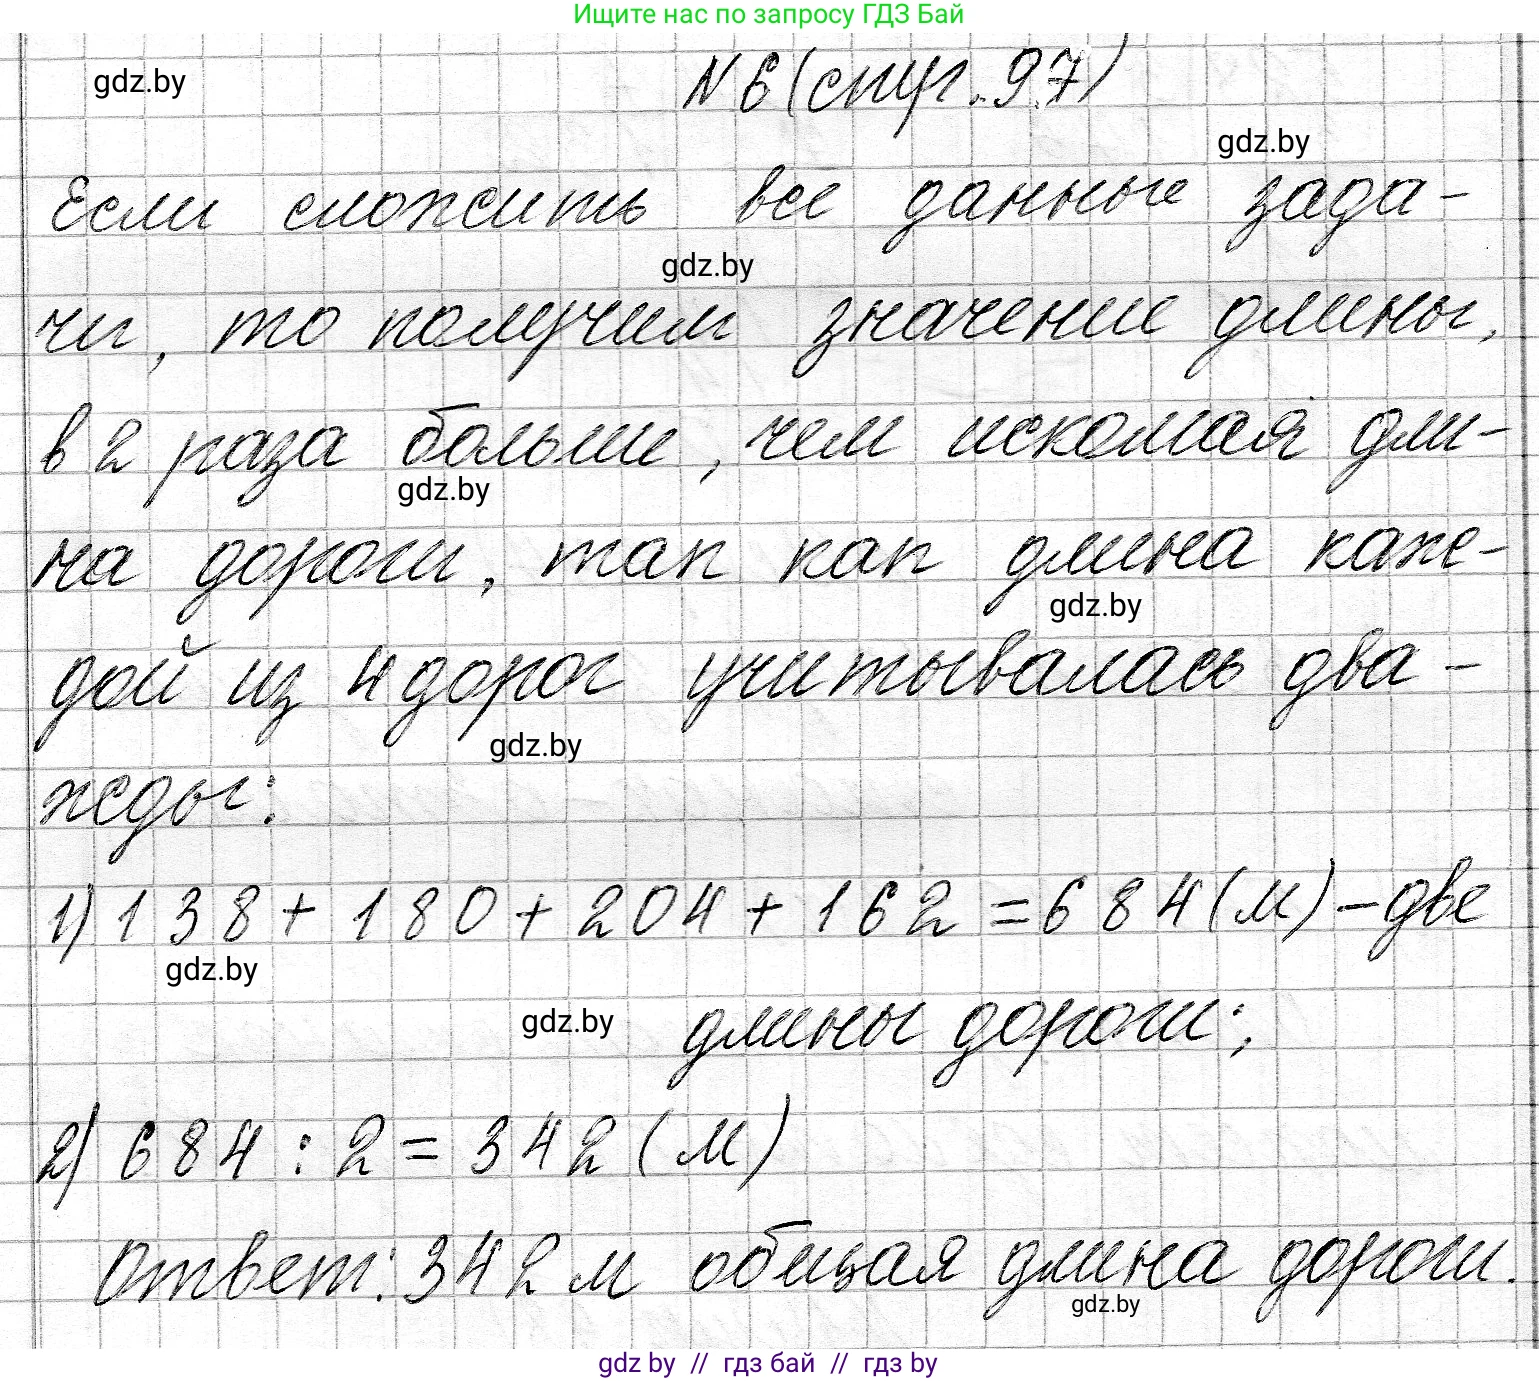 Ищите нас по запросу ГДЗ Бай
gdz.by
N 6 (стр. 97)
gdz.by
Если сложить все данные зада-
gdz.by
чи, то получим значение длины,
в 2 раза больше, чем искомая дли-
gdz.by
на дороги, так как длина каж-
gdz.by
дой из 4 дорог учитывалась два-
gdz.by
жды:
1) 138 + 180 + 204 + 162 = 684 (м) - две
gdz.by
gdz.by
длины дороги;
2) 684 : 2 = 342 (м)
Ответ: 342 м общая длина дороги.
gdz.by
gdz by // гдз бай // гдз by